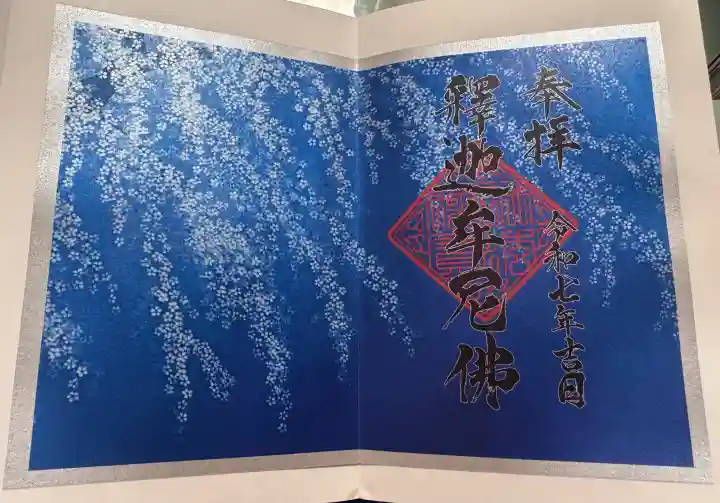 奉拝
令和七年吉日
釋迦牟尼佛